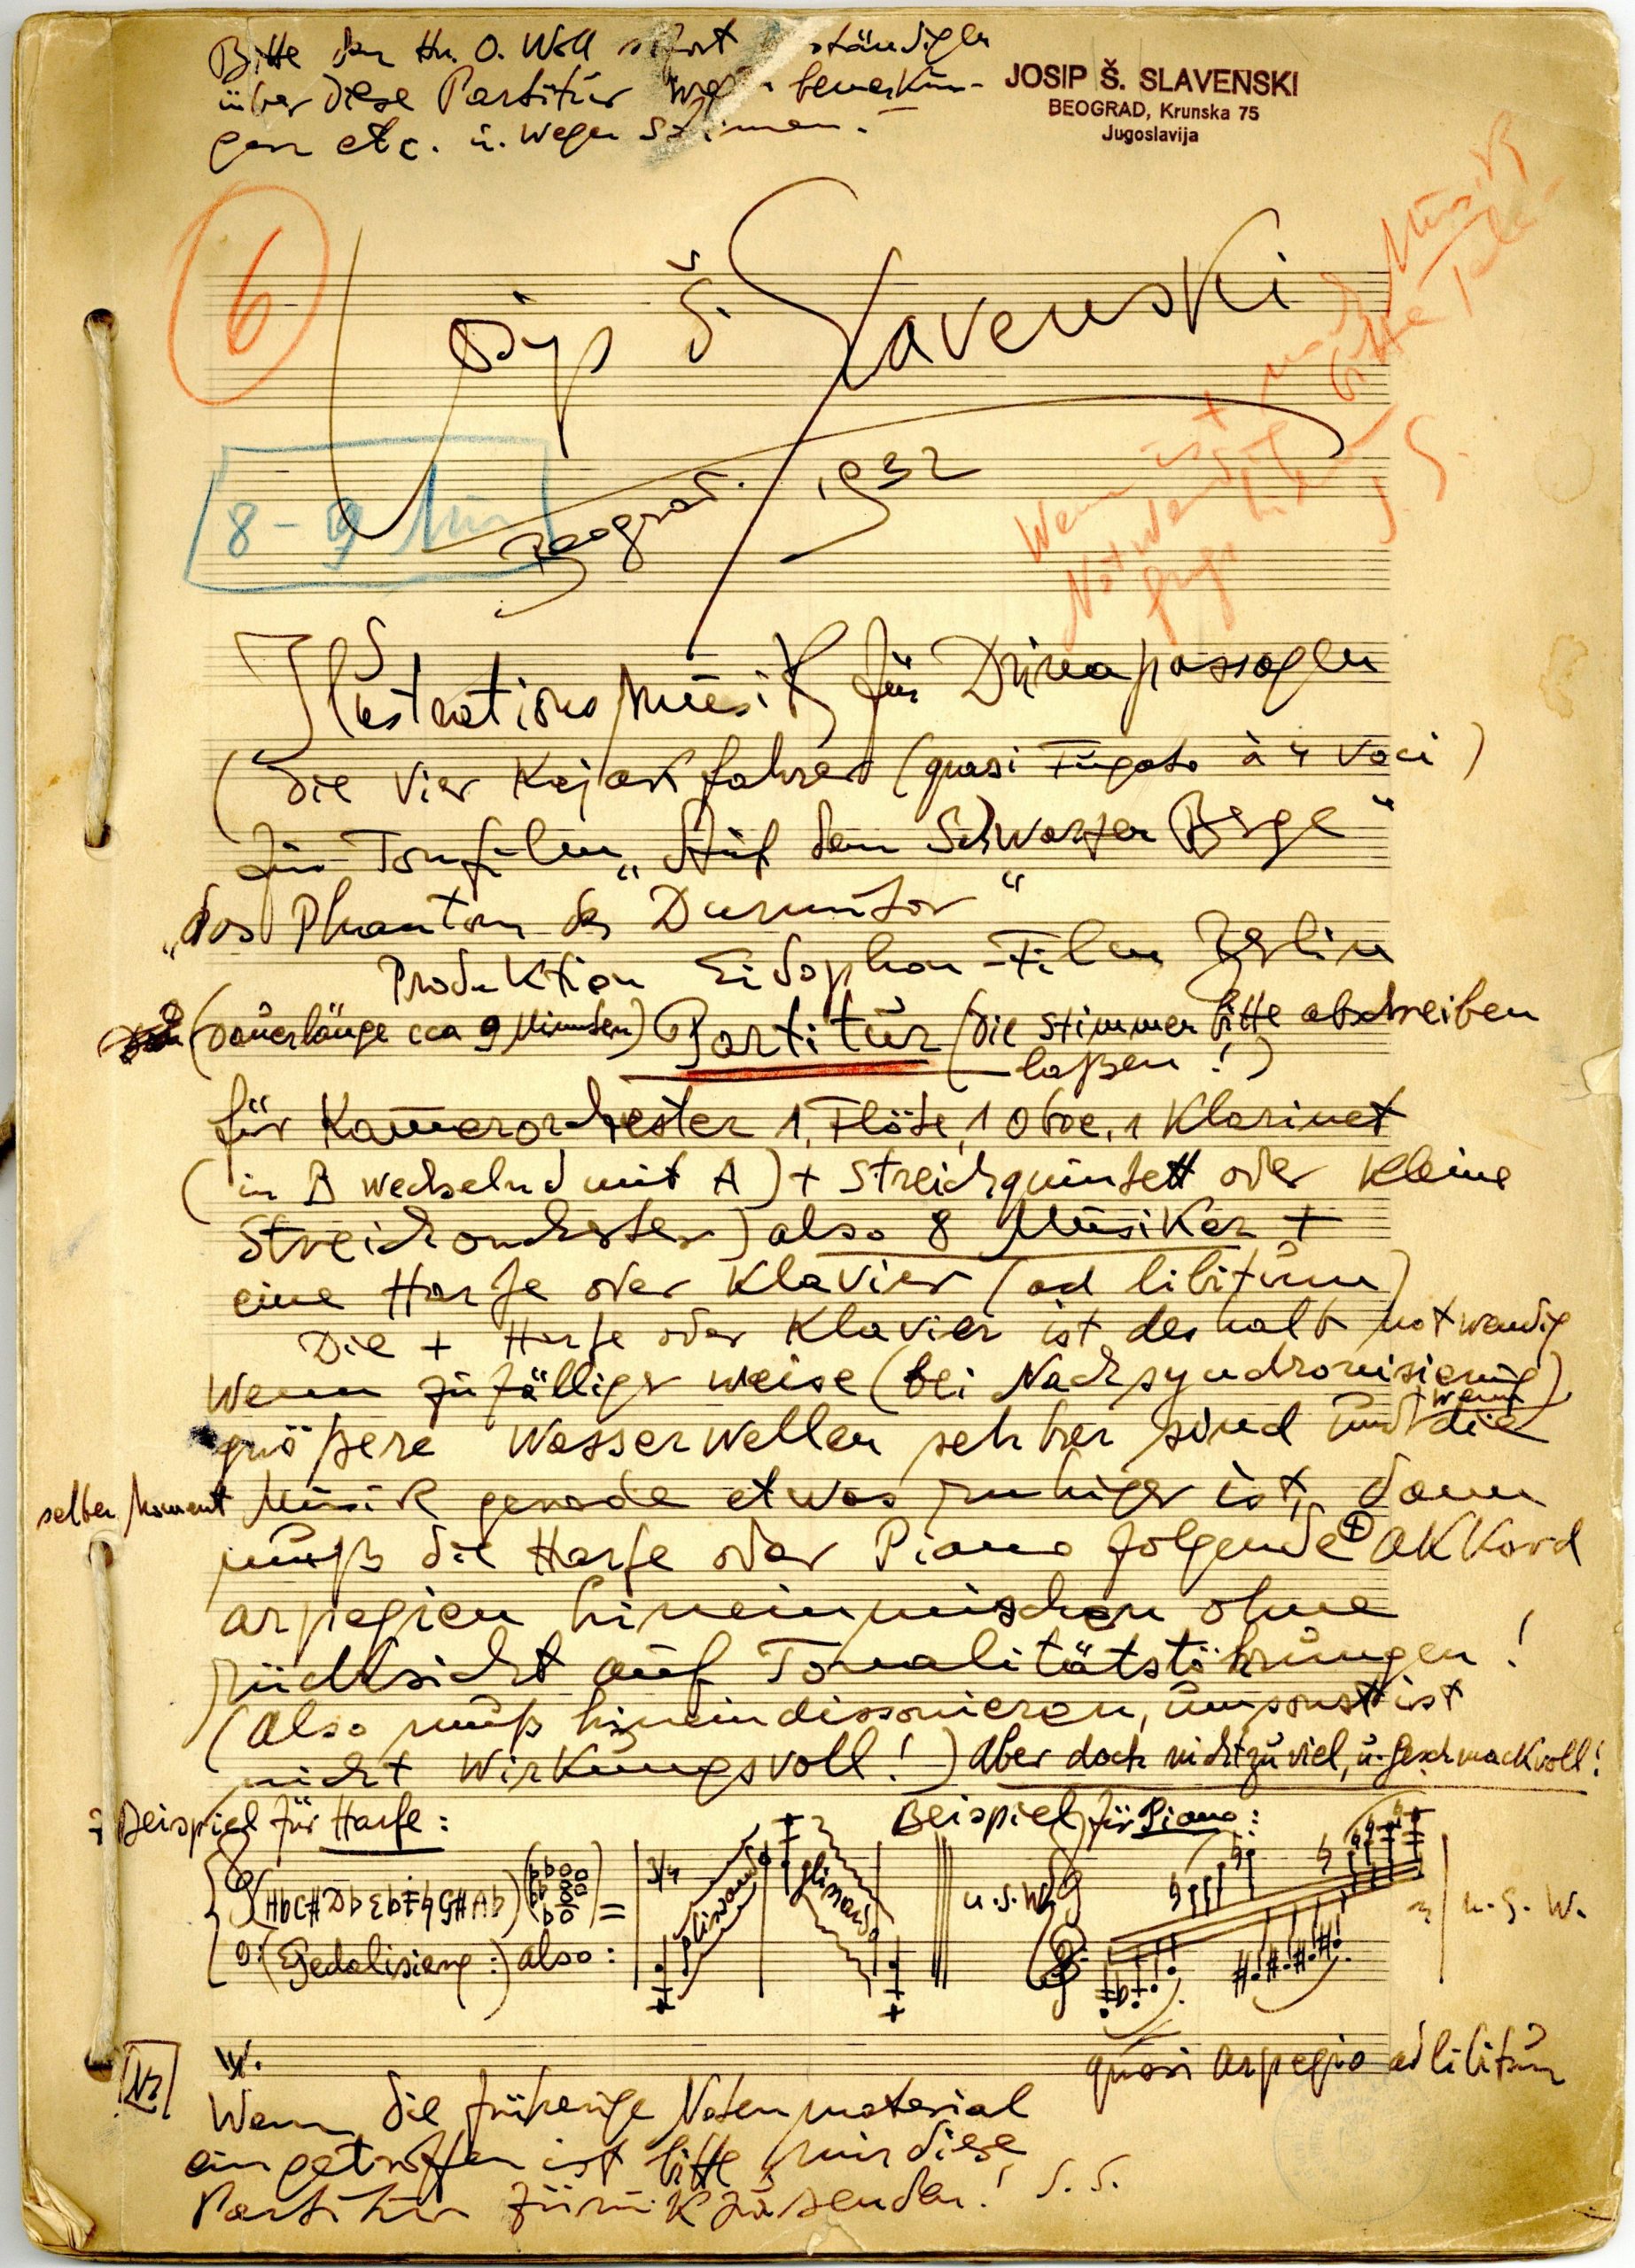 Bitte den Hn. O. Woll sofort ständigen
über diese Partitur wegen bemerkun-
gen etc. u. wegen Stimmen.
JOSIP Š. SLAVENSKI
BEOGRAD, Krunska 75
Jugoslavija
6
Josip Š. Slavenski
Beograd. 1932
8-9 Min
Wenn ist Musik
Notwendig bitte
J. S.
Illustrationsmusik für Drinapassagen
(die vier Kajakfahrer (quasi Fugato à 4 Voci)
für Tonfilm „Auf dem Schwarzen Berge“
„das Phantom des Durmitor“
Produktion Eidophon-Film Berlin
(Dauerlänge cca 9 Minuten) Partitur (die Stimmen bitte abschreiben
laßen!)
für Kammerorchester 1, Flöte, 1 Oboe, 1 Klarinet
(in B wechselnd mit A) + Streichquintett oder kleine
Streichorchester) also 8 Musiker +
eine Harfe oder Klavier (ad libitum)
Die + Harfe oder Klavier ist deshalb notwendig
Wenn zufälliger weise (bei Nachsynchronisierung)
größere Wasserwellen sehbar sind und wenn die
selben Moment Musik gerade etwas ruhiger ist, dann
muß die Harfe oder Piano folgende + Akkord
arpegien hineinmischen ohne
rücksicht auf Tonalitätstöhrungen!
(also muß hineindissonieren, umsonst ist
nicht Wirkungsvoll!) Aber doch nicht zu viel, u. Geschmackvoll!
Beispiel für Harfe: Beispiel für Piano:
(H♭C#D♭E♭F♮G#A♭) = 3/4 glissando glissando u.s.w. u.s.w.
(Pedalisierg:) also:
quasi arpegio ad libitum
NB
Wenn die früherige Notenmaterial
eingetroffen ist bitte mir diese
Partitur zurückzusenden! J.S.